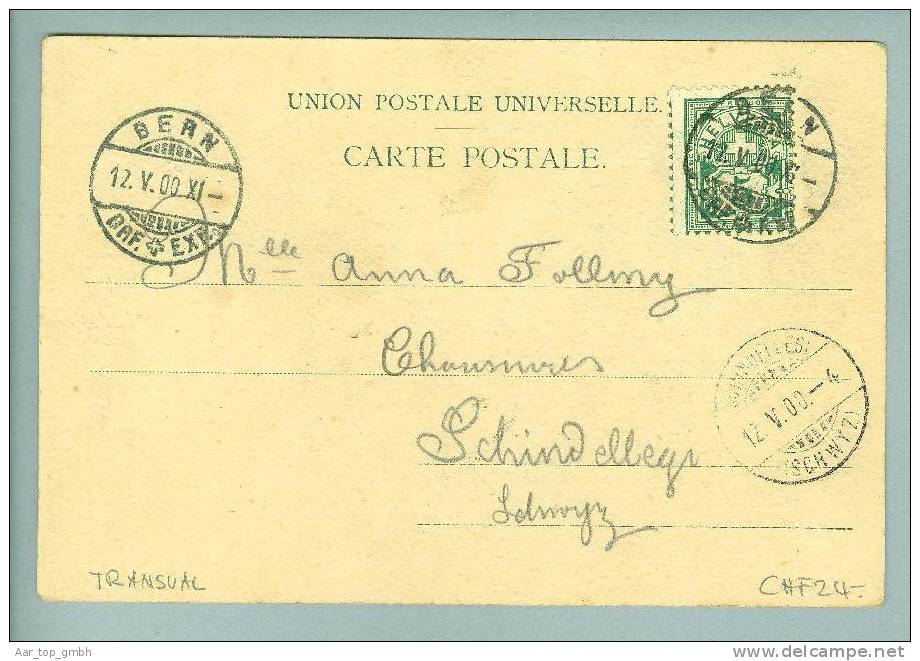 UNION POSTALE UNIVERSELLE.
CARTE POSTALE.
BERN
12. V. 00. XI-
BRF. EXP.
HELVETIA
BERN
12. V. 00. XI-
Mlle Anna Follmy
Chaussures
Schindellegi
Schwyz
SCHINDELLEGI
12. V. 00.-4
(SCHWYZ)
TRANSVAL
CHF 24.-
Aar_top_gmbh
www.delcampe.net